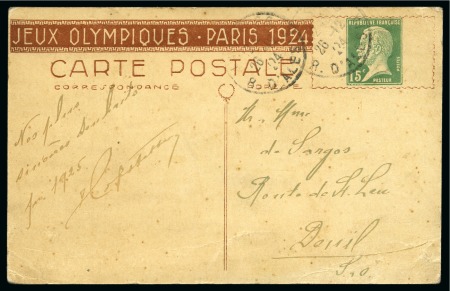 JEUX OLYMPIQUES · PARIS 1924
RÉPUBLIQUE FRANÇAISE
15
POSTES
CARTE POSTALE
CORRESPONDANCE
Nos plus
sincères souhaits
pr 1925.
M. Mme
de Sargos
Route de St Leu
Deuil
S. O.